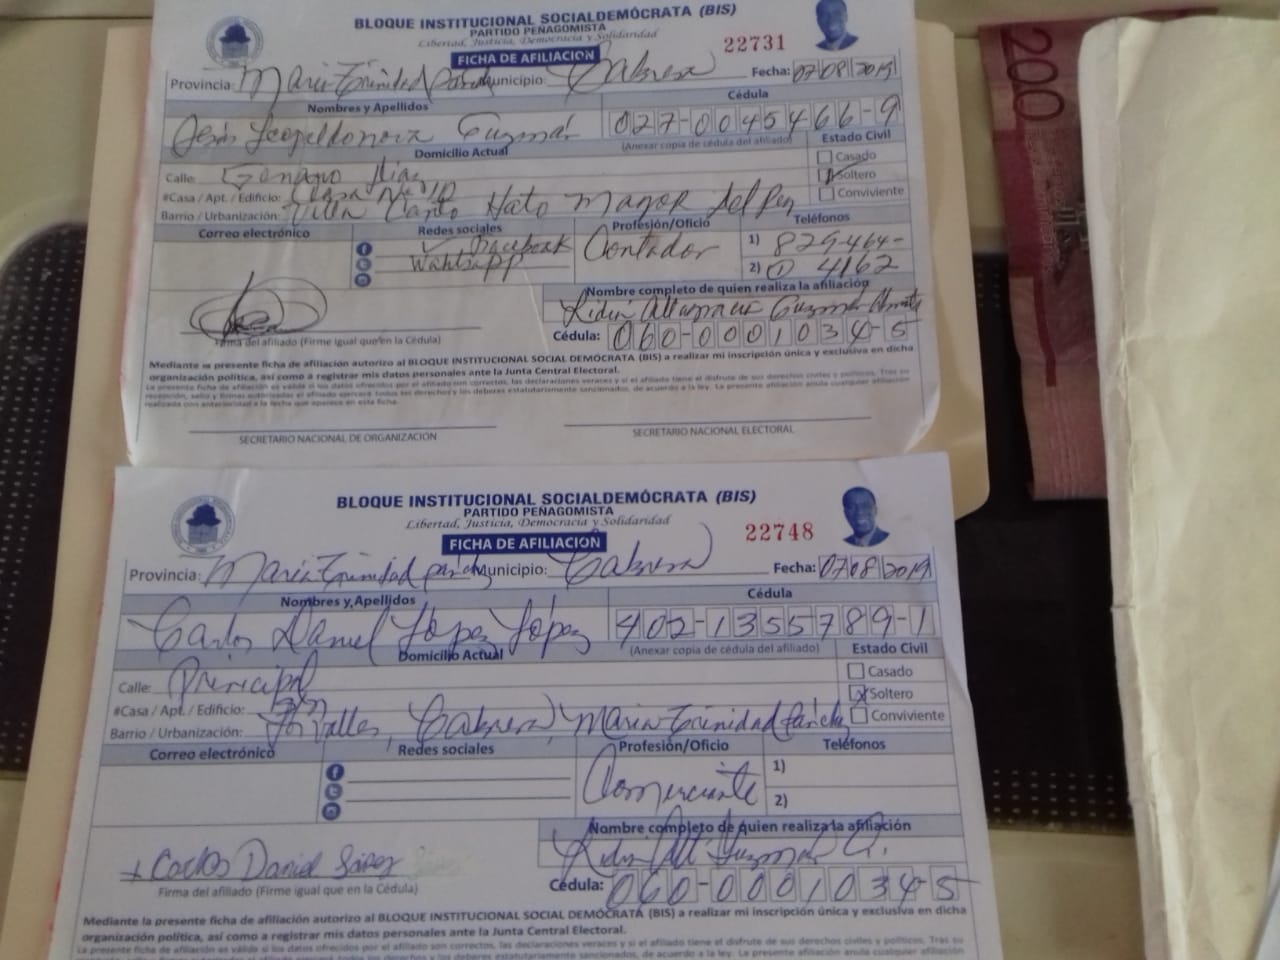 BLOQUE INSTITUCIONAL SOCIALDEMÓCRATA (BIS)
PARTIDO PEÑAGOMISTA
Libertad, Justicia, Democracia y Solidaridad
22731
FICHA DE AFILIACION
Provincia: Maria Trinidad Municipio: Cabrera Fecha: 07 08 2019
Nombres y Apellidos Cédula
Guzmán 027-0045466-9
Domicilio Actual (Anexar copia de cédula del afiliado) Estado Civil
Casado
Calle: Genaro Díaz Soltero
#Casa / Apt. / Edificio: Casa Conviviente
Barrio / Urbanización: Villa Canto Hato Mayor Del Rey
Correo electrónico Redes sociales Profesión/Oficio Teléfonos
Facebook Contador 1) 829-464-
Wahtsapp 2) 4162
Nombre completo de quien realiza la afiliación
Guzmán
Firma del afiliado (Firme igual que en la Cédula) Cédula: 060-0001034-5
Mediante la presente ficha de afiliación autorizo al BLOQUE INSTITUCIONAL SOCIAL DEMÓCRATA (BIS) a realizar mi inscripción única y exclusiva en dicha
organización política, así como a registrar mis datos personales ante la Junta Central Electoral.
La presente ficha de afiliación es válida si los datos ofrecidos por el afiliado son correctos, las declaraciones veraces y si el afiliado tiene el disfrute de sus derechos civiles y políticos. Tras su
recepción, sello y firmas autorizadas el afiliado ejercerá todos los derechos y los deberes estatutariamente sancionados, de acuerdo a la ley. La presente afiliación anula cualquier afiliación
realizada con anterioridad a la fecha que aparece en esta ficha.
SECRETARIO NACIONAL DE ORGANIZACIÓN SECRETARIO NACIONAL ELECTORAL
200
BLOQUE INSTITUCIONAL SOCIALDEMÓCRATA (BIS)
PARTIDO PEÑAGOMISTA
Libertad, Justicia, Democracia y Solidaridad
22748
FICHA DE AFILIACIÓN
Provincia: Maria Trinidad Municipio: Cabrera Fecha: 07 08 2019
Nombres y Apellidos Cédula
Carlos Daniel López López 402-1355789-1
Domicilio Actual (Anexar copia de cédula del afiliado) Estado Civil
Casado
Calle: Principal Soltero
#Casa / Apt. / Edificio: S/N Conviviente
Barrio / Urbanización: Cabrera, Maria Trinidad Sánchez
Correo electrónico Redes sociales Profesión/Oficio Teléfonos
Comerciante 1)
2)
Nombre completo de quien realiza la afiliación
Guzmán
Carlos Daniel
Firma del afiliado (Firme igual que en la Cédula) Cédula: 060-0001034-5
Mediante la presente ficha de afiliación autorizo al BLOQUE INSTITUCIONAL SOCIAL DEMÓCRATA (BIS) a realizar mi inscripción única y exclusiva en dicha
organización política, así como a registrar mis datos personales ante la Junta Central Electoral.
La presente ficha de afiliación es válida si los datos ofrecidos por el afiliado son correctos, las declaraciones veraces y si el afiliado tiene el disfrute de sus derechos civiles y políticos. Tras su